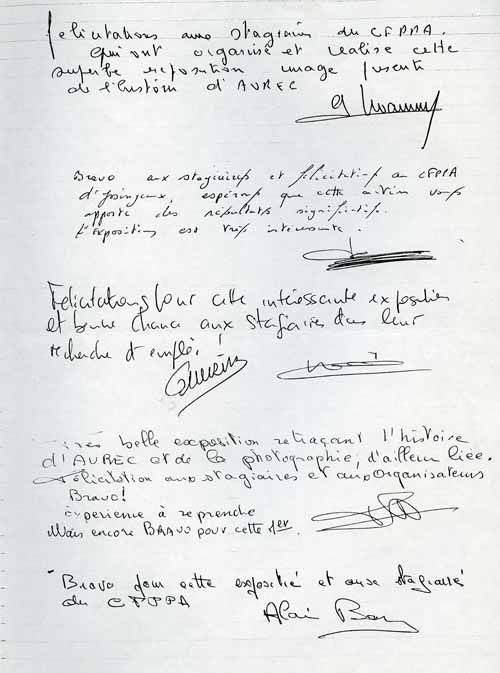 Felicitations aux stagiaires du CFPPA.
qui ont organisé et réalisé cette
superbe exposition image
de l'histoire d'AUREC
Bravo aux stagiaires et félicitations au CFPPA
d'Yssingeaux, espérons que cette action vous
apporte des résultats significatifs.
L'exposition est très intéressante.
Félicitations pour cette intéressante exposition
et bonne chance aux stagiaires dans leur
recherche d'emploi !
Très belle exposition retraçant l'histoire
d'AUREC et de la photographie, d'ailleur liée.
Félicitation aux stagiaires et aux organisateurs
Bravo!
Expérience à reprendre
Mais encore BRAVO pour cette 1er.
Bravo pour cette exposition et aux stagiaires
du CFPPA
Alain